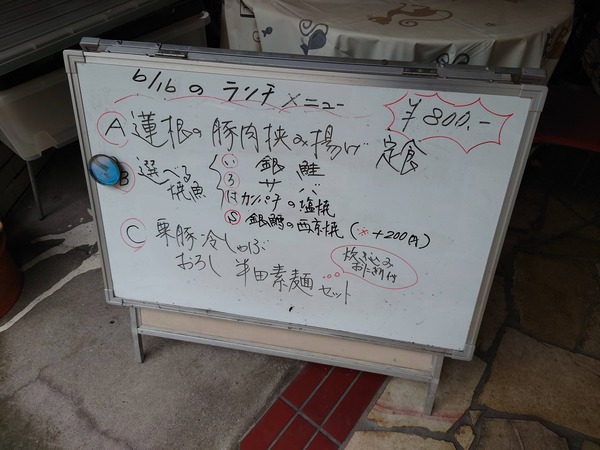 6/16の ランチメニュー
¥800.-
A 蓮根の豚肉挟み揚げ 定食
B 選べる焼魚
い 銀鮭
ろ サバ
は カンパチの塩焼
S 銀鱈の西京焼 (※+200円)
C 栗豚冷しゃぶ
おろし 半田素麺セット
炊き込み
おにぎり付